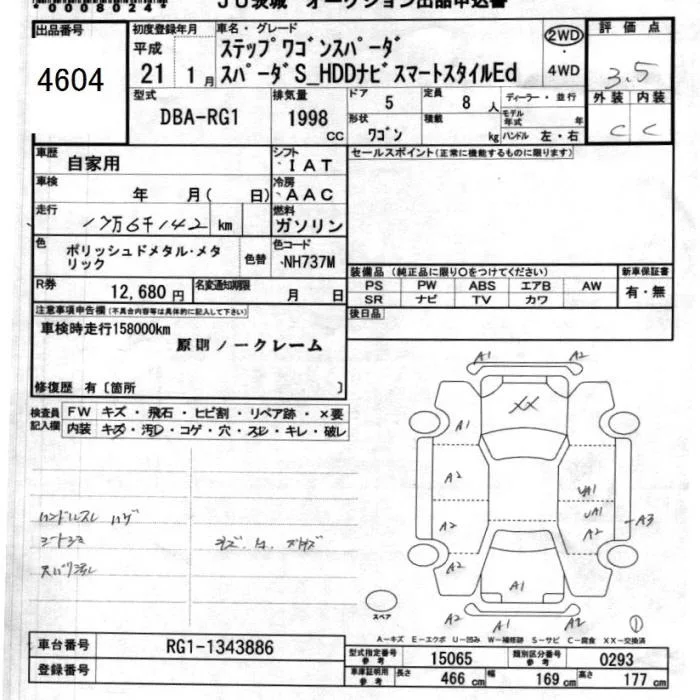 *0008024*
JU茨城 オークション出品申込書
出品番号
4604
初度登録年月
平成
21 1月
車名・グレード
ステップワゴンスパーダ
スパーダS_HDDナビスマートスタイルEd
2WD・
4WD
評価点
3.5
外装 内装
C C
型式
DBA-RG1
排気量
1998 CC
ドア 5
定員 8人
形状
ワゴン
積載 kg
ディーラー・並行
モデル年式 年
ハンドル 左・右
車歴
自家用
シフト
IAT
セールスポイント(正常に機能するものに限ります)
車検
年 月( 日)
冷房
AAC
走行
17万6千142 km
燃料
ガソリン
色
ポリッシュドメタル・メタリック
色替
色コード
NH737M
R券
12,680円
名変通知期限
月 日
装備品(純正品に限り○をつけてください)
PS PW ABS エアB AW
SR ナビ TV カワ
新車保証書
有・無
後日品
注意事項申告欄(不具合内容等は具体的に記入して下さい)
車検時走行158000km
原則ノークレーム
修復歴 有〔箇所 〕
検査員記入欄
FW キズ・飛石・ヒビ割・リペア跡・×要
内装 キズ・汚レ・コゲ・穴・スレ・キレ・破レ
ハンドルスレ ハゲ
A1 A2
XX
A1
A2
A2
UA1
UA1
A2
A3
A1
A2 A2
A1 A2
スペア
①
A-キズ E-エクボ U-凹み W-補修跡 S-サビ C-腐食 XX-交換済
車台番号
RG1-1343886
登録番号
型式指定番号 参考
15065
類別区分番号 参考
0293
車庫証明用 参考
長さ 466 cm
幅 169 cm
高さ 177 cm